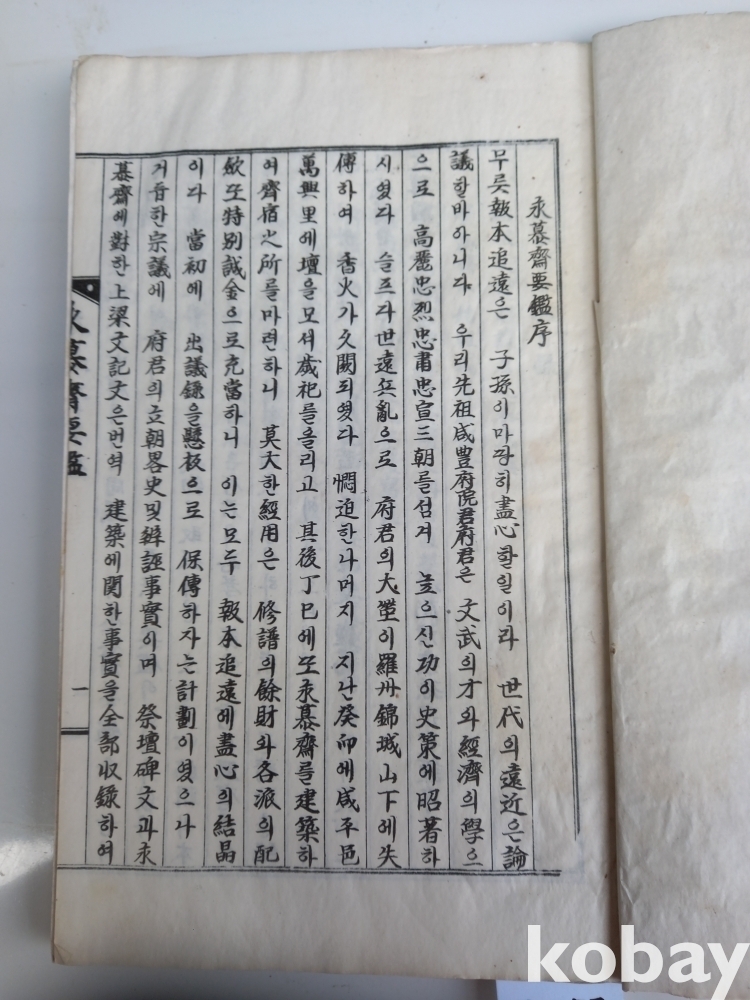 永慕齋要鑑序
무릇報本追遠은 子孫이마땅히盡心할일이라 世代의遠近은論
議할바아니다 우리先祖咸豊府院君府君은 文武의才와經濟의學으
으로 高麗忠烈忠肅忠宣三朝를섬겨 높으신功이史策에昭著하
시였다 슬프다世遠兵亂으로 府君의大塋이羅州錦城山下에失
傳하여 香火가久闕되였다 憫迫한나머지 지난癸卯에咸平邑
萬興里에壇을모셔歲祀를올리고 其後丁巳에또永慕齋를建築하
여齋宿之所를마련하니 莫大한經用은 修譜의餘財와各派의配
歛또特別誠金으로充當하니 이는모두 報本追遠에盡心의結晶
이다 當初에 出議錄을懸板으로 保傳하자는計劃이였으나
거듭한宗議에 府君의立朝畧史및辨誣事實이며 祭壇碑文과永
慕齋에對한上梁文記文은번역 建築에関한事實을全部収錄하여
永慕齋要鑑
一
kobay